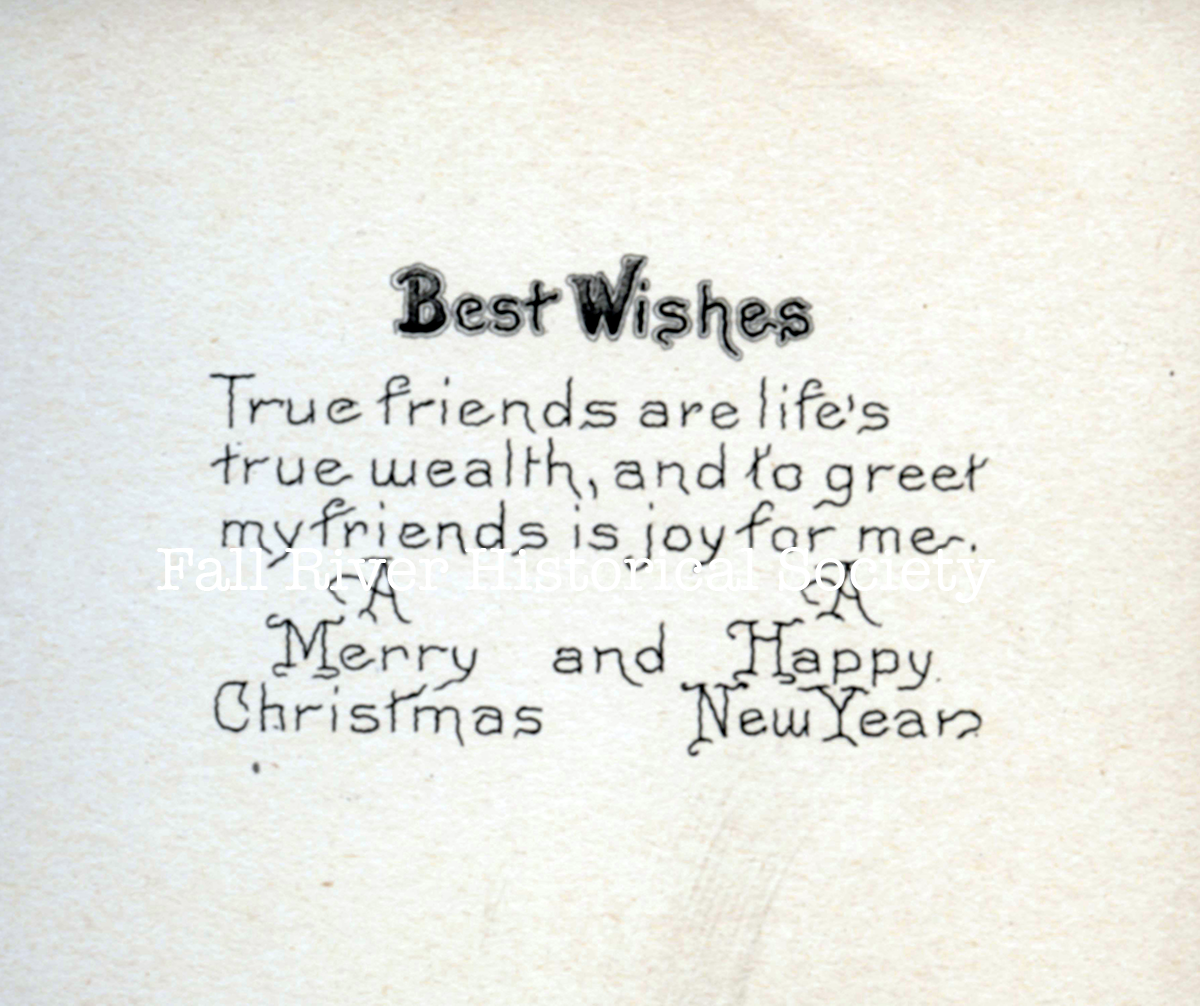 Best Wishes
True friends are life's
true wealth, and to greet
my friends is joy for me.
Fall River Historical Society
A A
Merry and Happy
Christmas New Year